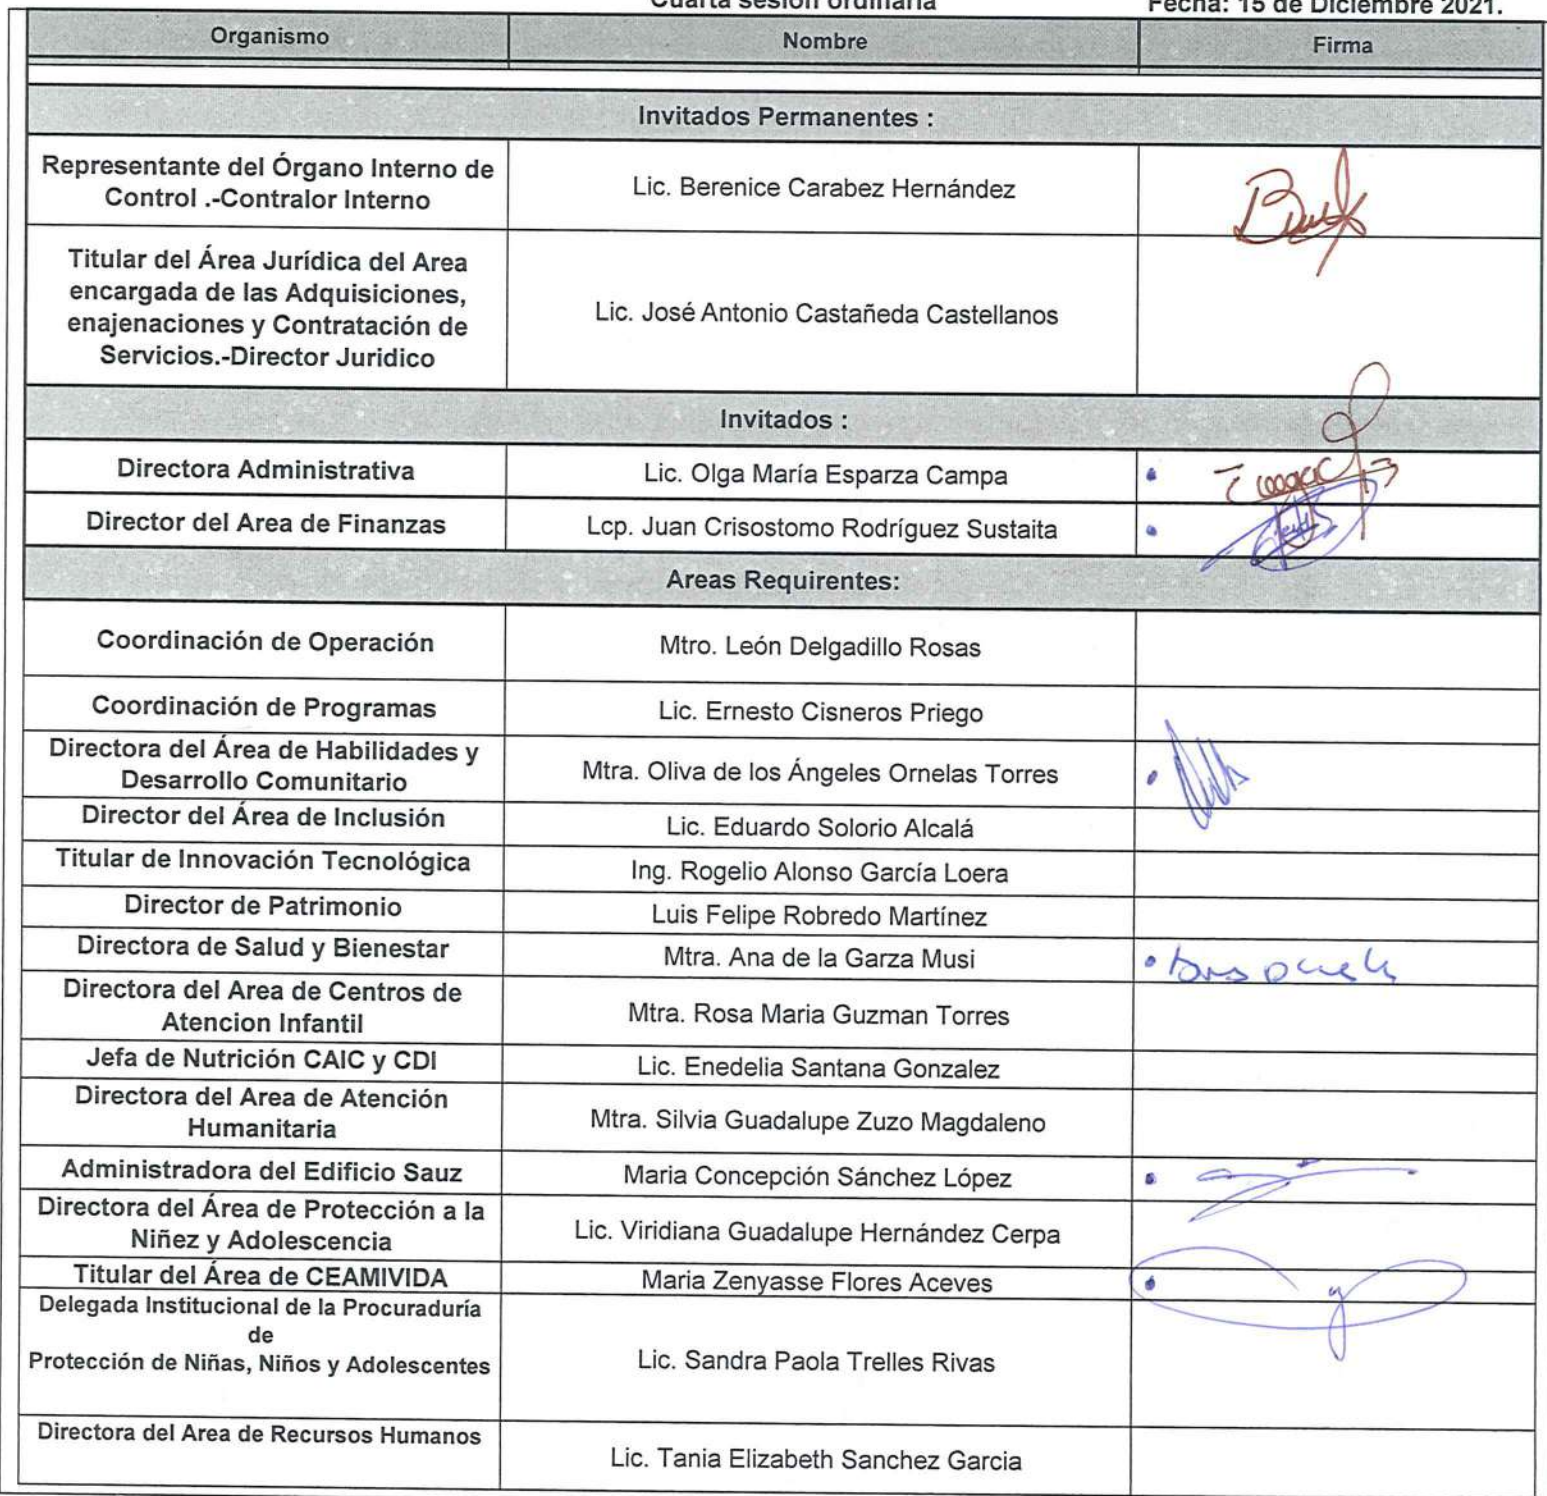 Cuarta sesión ordinaria Fecha: 15 de Diciembre 2021.
Organismo Nombre Firma
Invitados Permanentes :
Representante del Órgano Interno de
Control .-Contralor Interno
Lic. Berenice Carabez Hernández
Titular del Área Jurídica del Area
encargada de las Adquisiciones,
enajenaciones y Contratación de
Servicios.-Director Juridico
Lic. José Antonio Castañeda Castellanos
Invitados :
Directora Administrativa Lic. Olga María Esparza Campa
Director del Area de Finanzas Lcp. Juan Crisostomo Rodríguez Sustaita
Areas Requirentes:
Coordinación de Operación Mtro. León Delgadillo Rosas
Coordinación de Programas Lic. Ernesto Cisneros Priego
Directora del Área de Habilidades y
Desarrollo Comunitario
Mtra. Oliva de los Ángeles Ornelas Torres
Director del Área de Inclusión Lic. Eduardo Solorio Alcalá
Titular de Innovación Tecnológica Ing. Rogelio Alonso García Loera
Director de Patrimonio Luis Felipe Robredo Martínez
Directora de Salud y Bienestar Mtra. Ana de la Garza Musi
Directora del Area de Centros de
Atencion Infantil
Mtra. Rosa Maria Guzman Torres
Jefa de Nutrición CAIC y CDI Lic. Enedelia Santana Gonzalez
Directora del Area de Atención
Humanitaria
Mtra. Silvia Guadalupe Zuzo Magdaleno
Administradora del Edificio Sauz Maria Concepción Sánchez López
Directora del Área de Protección a la
Niñez y Adolescencia
Lic. Viridiana Guadalupe Hernández Cerpa
Titular del Área de CEAMIVIDA Maria Zenyasse Flores Aceves
Delegada Institucional de la Procuraduría
de
Protección de Niñas, Niños y Adolescentes
Lic. Sandra Paola Trelles Rivas
Directora del Area de Recursos Humanos
Lic. Tania Elizabeth Sanchez Garcia